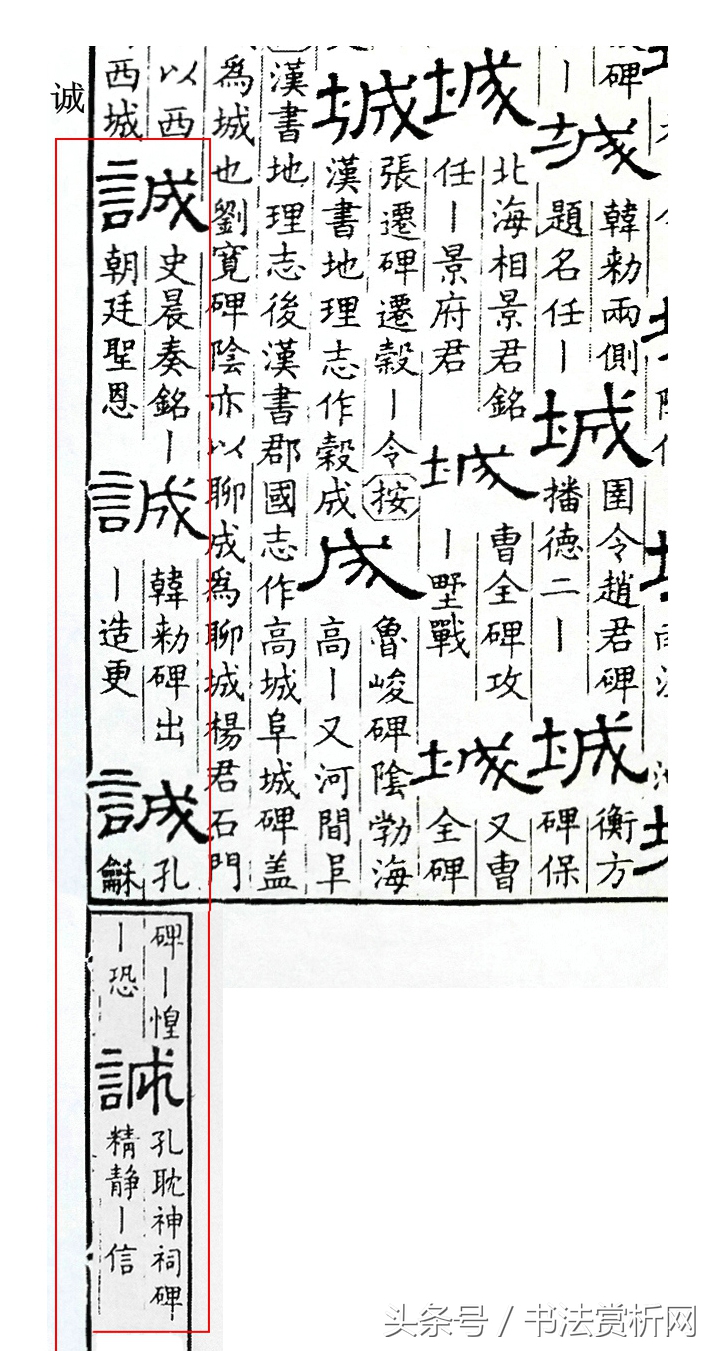 诚
碑
丨
城
韓勑兩側
題名任丨
城
圉令趙君碑
播德二丨
城
衡方
碑保
城
北海相景君銘
任丨景府君
城
曹全碑攻
丨野戰
城
又曹
全碑
城
張遷碑遷穀丨令按
漢書地理志作穀成
成
魯峻碑陰勃海
高丨又河間阜
漢書地理志後漢書郡國志作高城阜城碑盖
爲城也劉寬碑陰亦以聊成爲聊城楊君石門
以西
西城
誠
史晨奏銘丨
朝廷聖恩
誠
韓勑碑出
丨造更
誠
孔
龢
碑丨惶
丨恐
誠
孔耽神祠碑
精静丨信
头条号 / 书法赏析网